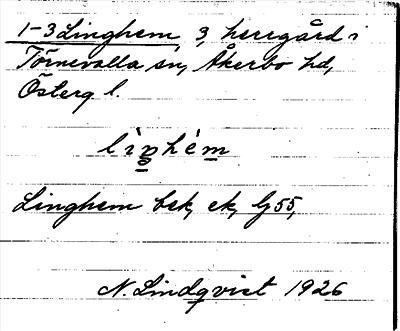 1-3 Linghem, 3, herrgård i
Törnevalla sn, Åkerbo hd,
Österg l.
Linghem bsk, ek, G 55,
N. Lindqvist 1926